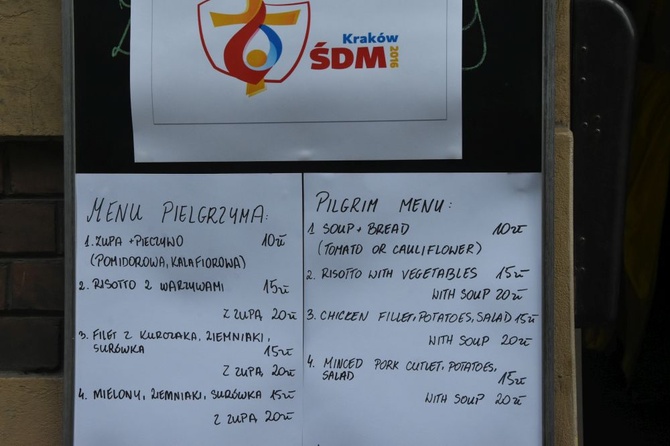 Kraków
ŚDM 2016
MENU PIELGRZYMA:
1. ZUPA + PIECZYWO 10zł
(POMIDOROWA, KALAFIOROWA)
2. RISOTTO Z WARZYWAMI 15zł
Z ZUPĄ 20zł
3. FILET Z KURCZAKA, ZIEMNIAKI,
SURÓWKA 15zł
Z ZUPĄ 20zł
4. MIELONY, ZIEMNIAKI, SURÓWKA 15zł
Z ZUPĄ 20zł
PILGRIM MENU:
1 SOUP + BREAD 10zł
(TOMATO OR CAULIFLOWER)
2. RISOTTO WITH VEGETABLES 15zł
WITH SOUP 20zł
3. CHICKEN FILLET, POTATOES, SALAD 15zł
WITH SOUP 20zł
4. MINCED PORK CUTLET, POTATOES,
SALAD 15zł
WITH SOUP 20zł